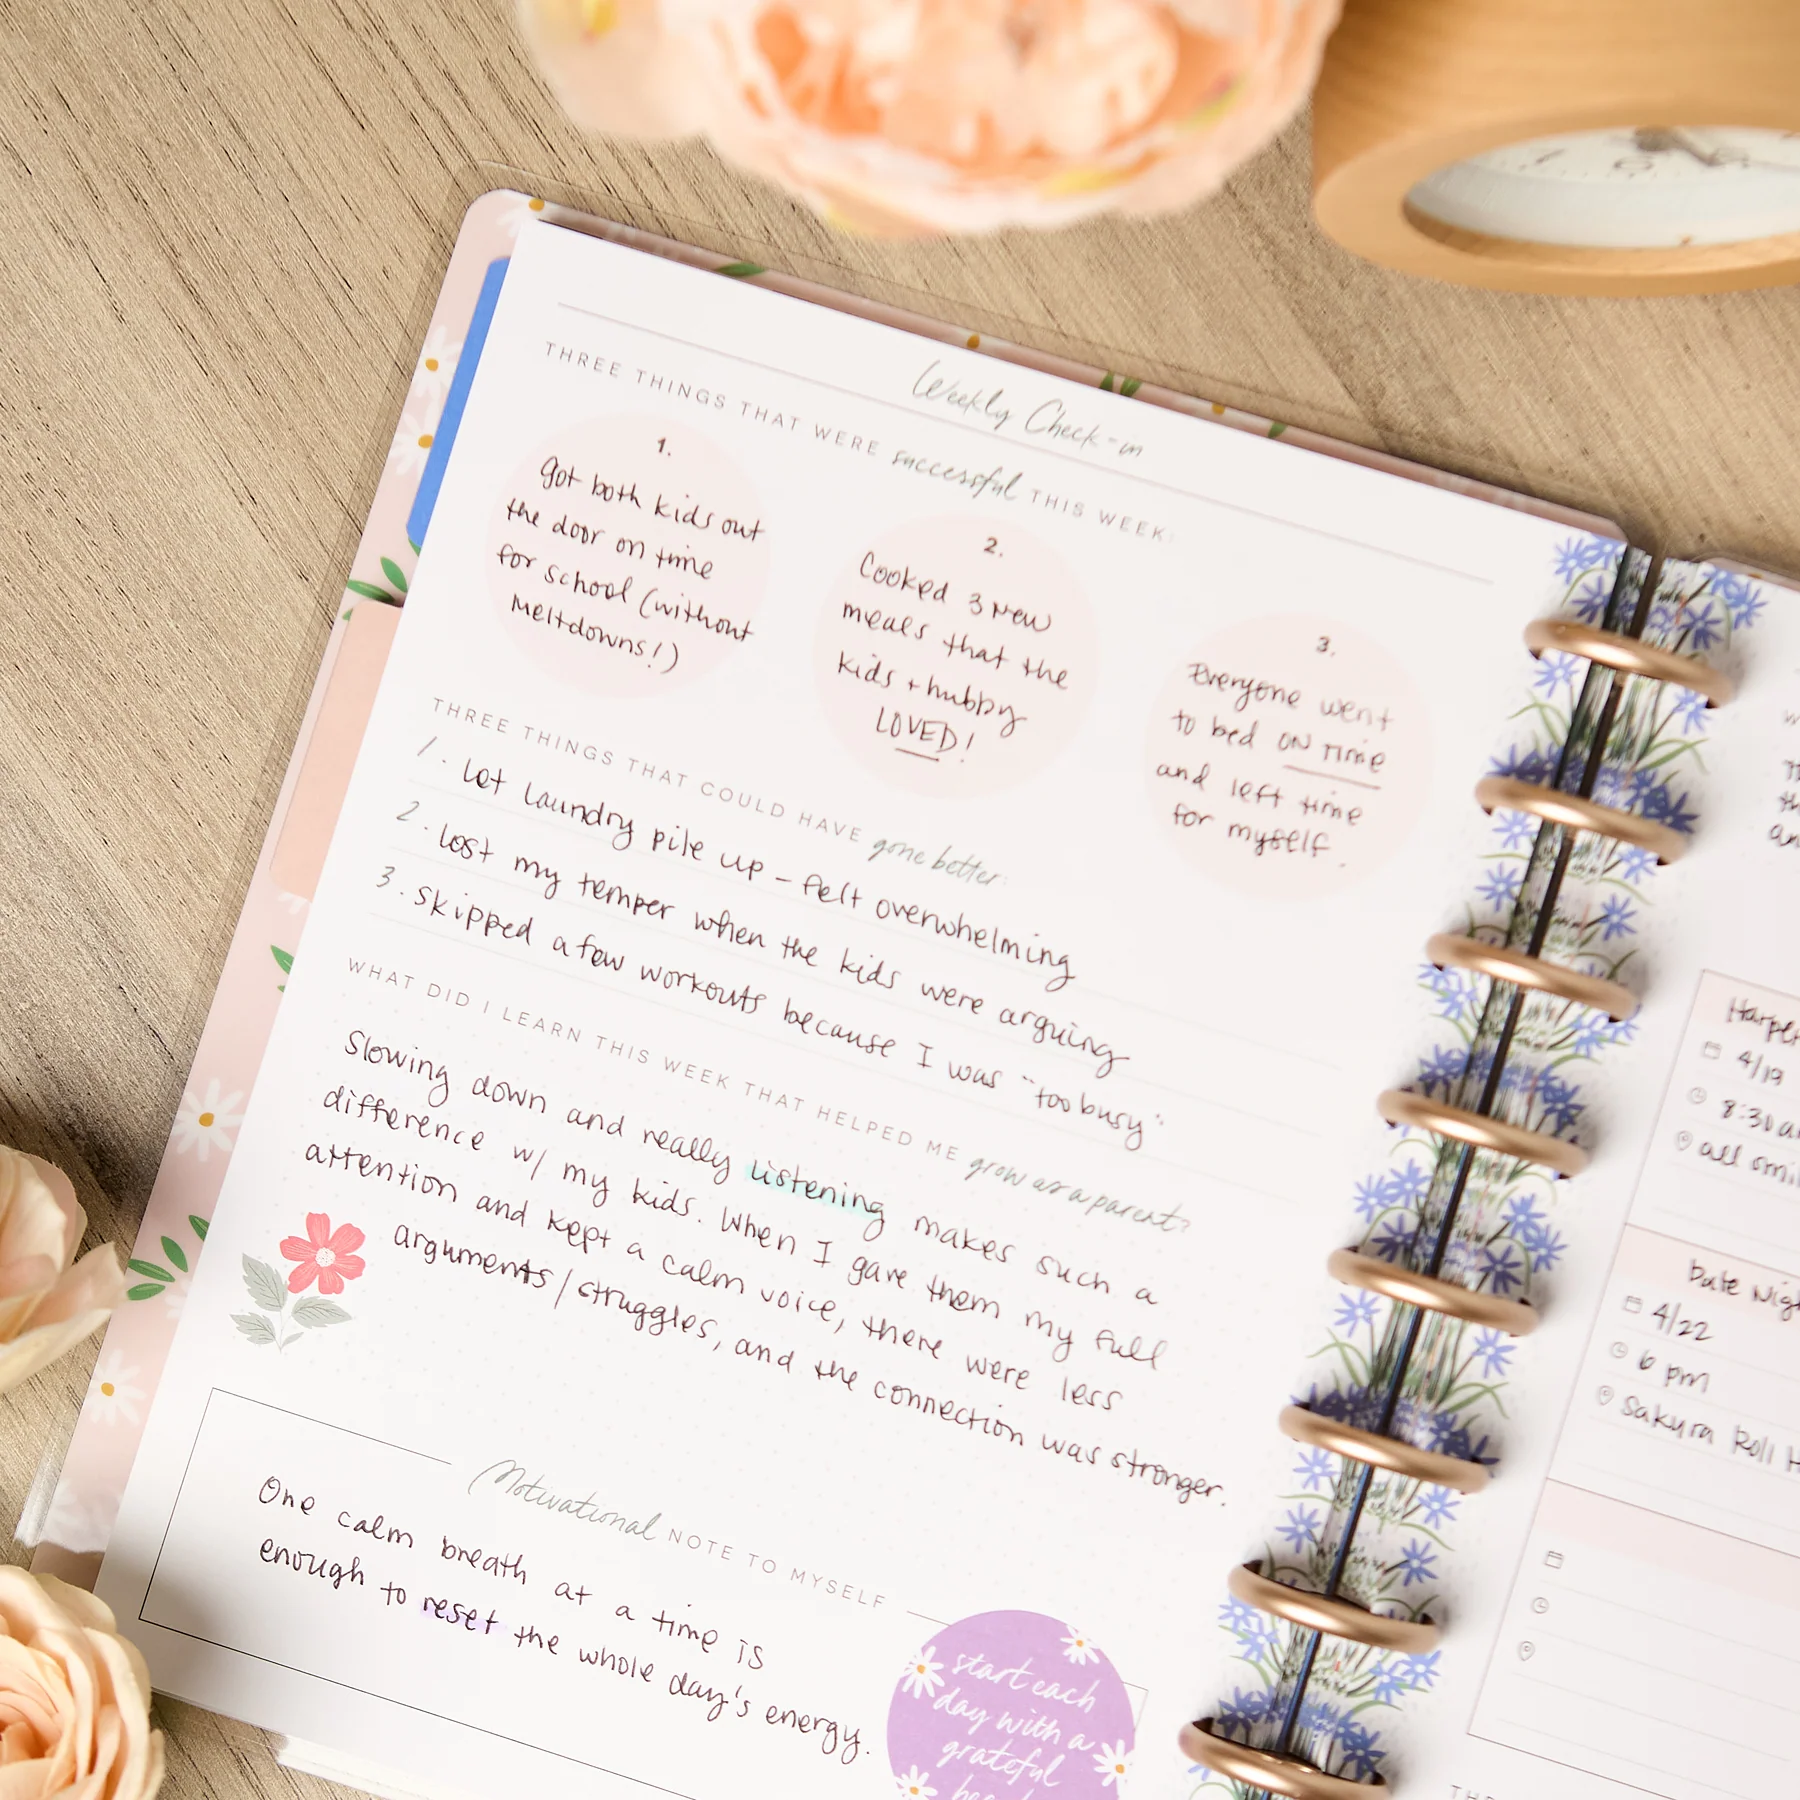 Weekly Check-in
THREE THINGS THAT WERE successful THIS WEEK:
1.
Got both kids out
the door on time
for school (without
meltdowns!)
2.
Cooked 3 new
meals that the
kids + hubby
LOVED!
3.
Everyone went
to bed ON TIME
and left time
for myself.
THREE THINGS THAT COULD HAVE gone better:
1. Let laundry pile up - felt overwhelming
2. Lost my temper when the kids were arguing
3. Skipped a few workouts because I was "too busy"
WHAT DID I LEARN THIS WEEK THAT HELPED ME grow as a parent?
Slowing down and really listening makes such a
difference w/ my kids. When I gave them my full
attention and kept a calm voice, there were less
arguments/struggles, and the connection was stronger.
Motivational NOTE TO MYSELF
One calm breath at a time is
enough to reset the whole day's energy.
start each
day with a
grateful
Harper
4/19
8:30 a
all smil
Date Nigh
4/22
6 pm
Sakura Roll H